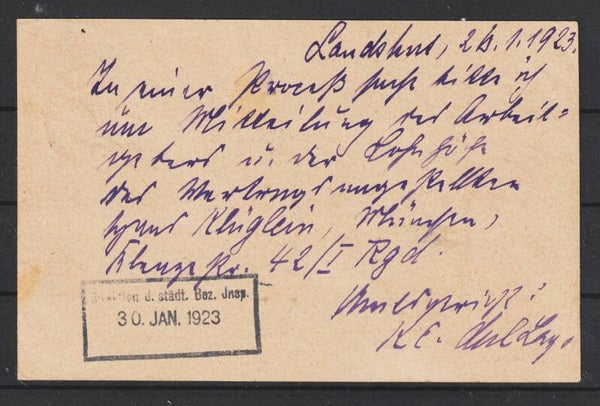 Landshut, 26.1.1923.
In einer Prozeß sache bitte ich
um Mitteilung des Arbeit=
gebers u. der Lohnhöhe
des Vertragsangestellten
Hans Klüglein, München,
Klenzestr. 42/I Rgd.
Amtsgericht:
städt. Bez. Insp.
30. JAN. 1923